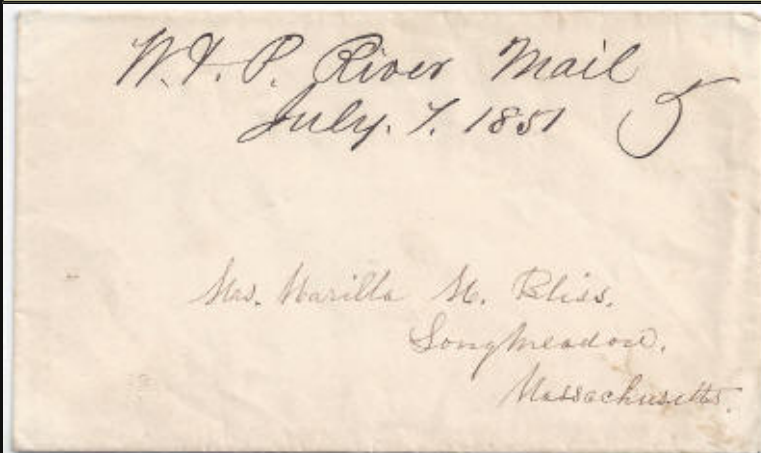 W. & P. River Mail
July. 7. 1851 5
Mrs. Marilla M. Bliss.
Longmeadow.
Massachusetts.